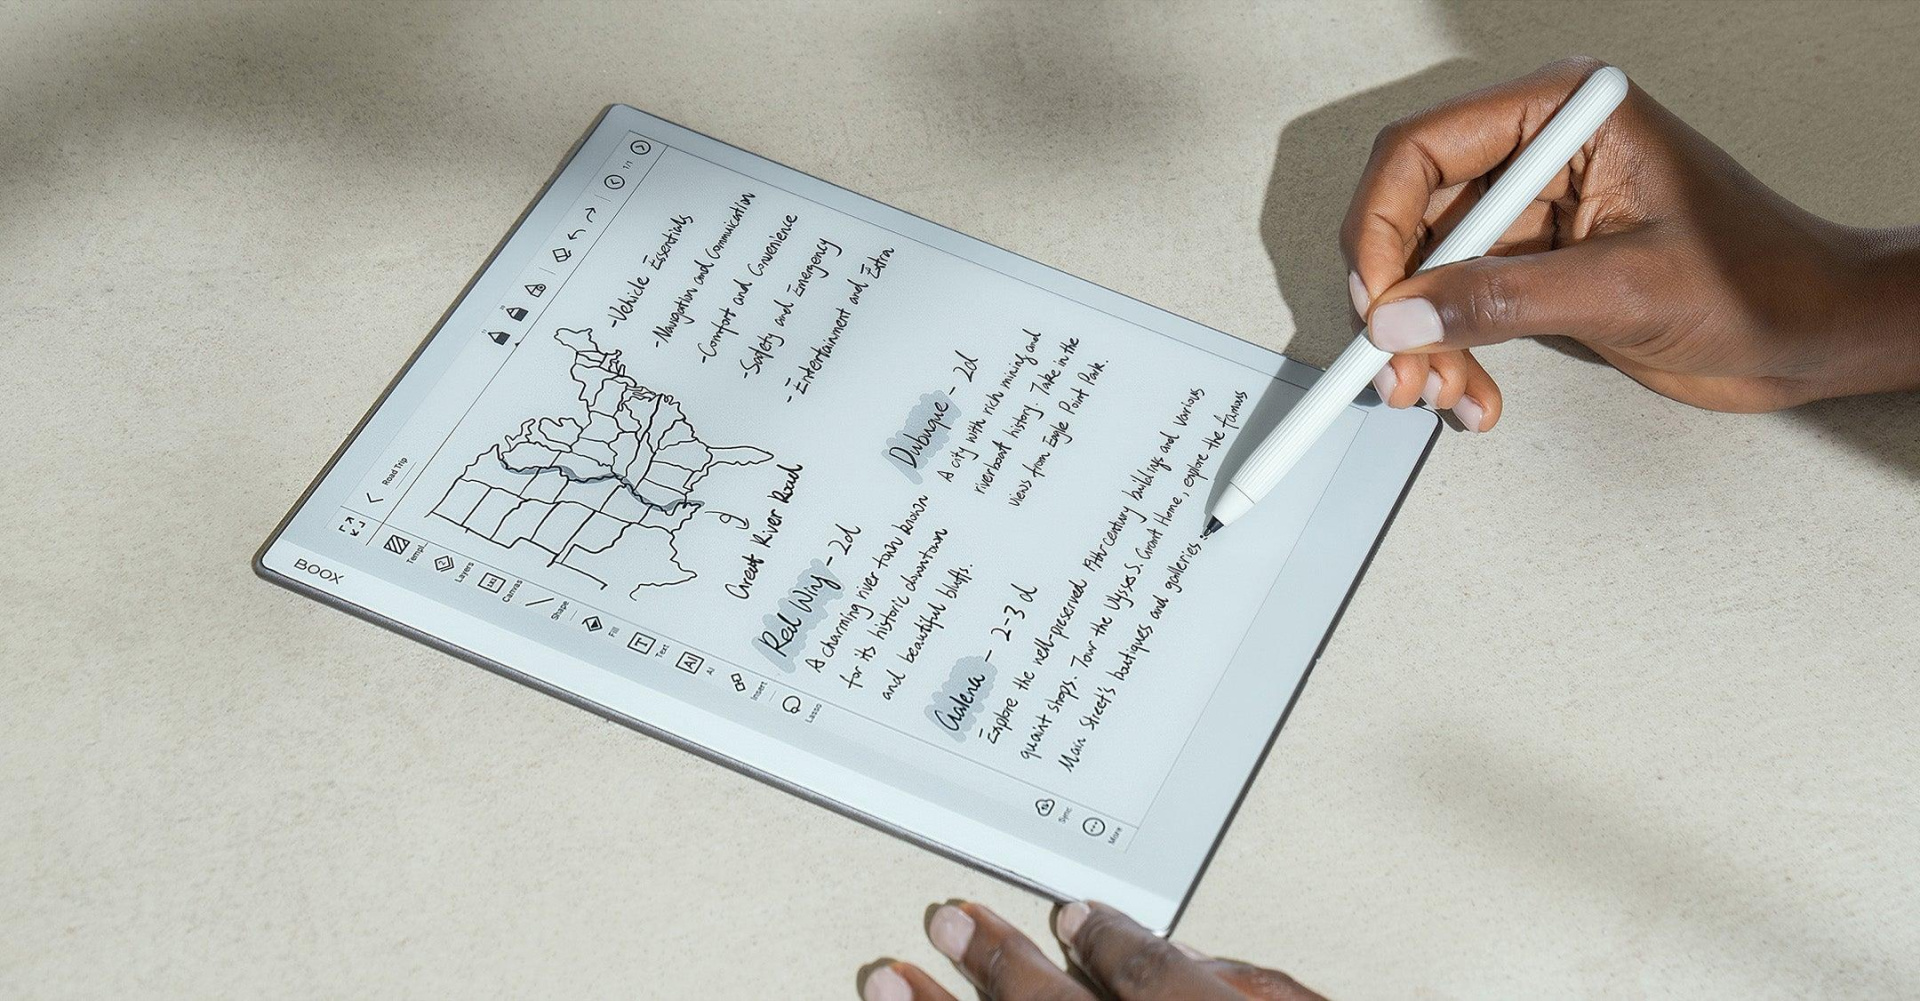 BOOX
Road Trip
1/1
Templ.
Layers
Canvas
Shape
Fill
Text
AI
Insert
Lasso
Sync
More
-Vehicle Essentials
-Navigation and Communication
-Comfort and Convenience
-Safety and Emergency
-Entertainment and Extra
Great River Road
Red Wing - 2d
A charming river town known
for its historic downtown
and beautiful bluffs.
Dubuque - 2d
A city with rich mining and
riverboat history. Take in the
views from Eagle Point Park.
Galena - 2-3 d
Explore the well-preserved 19th century buildings and various
quaint shops. Tour the Ulysses S. Grant Home, explore the famous
Main Street's boutiques and galleries.